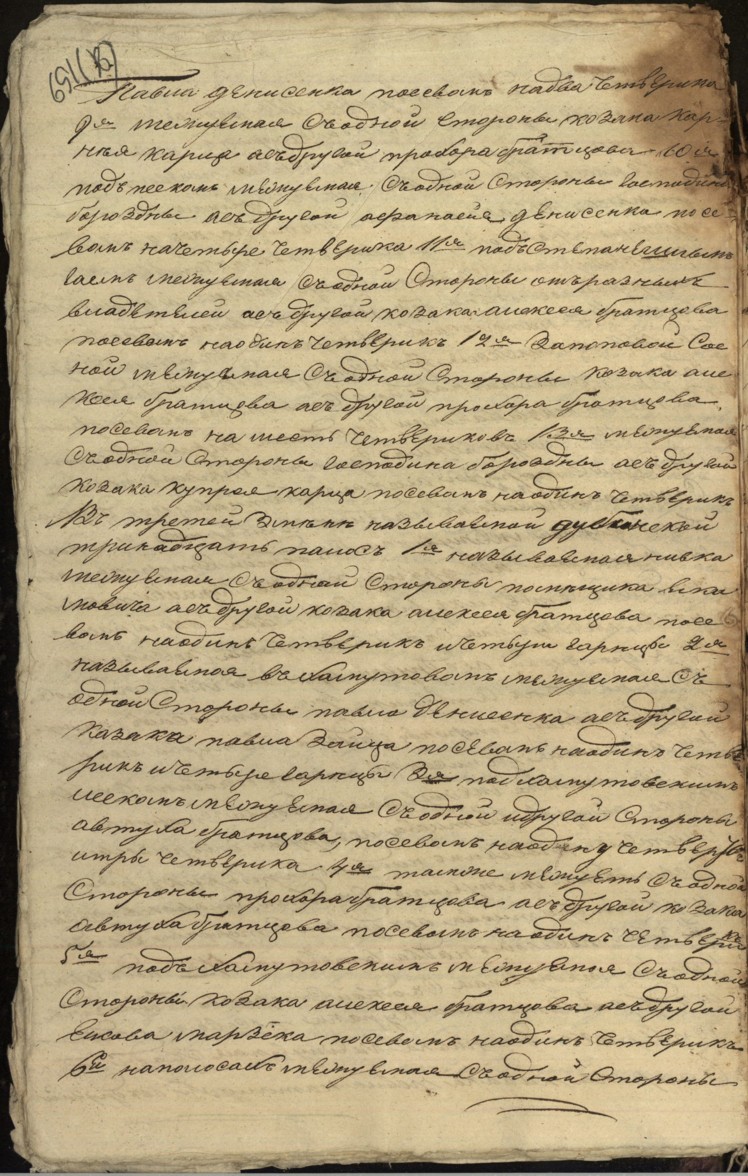 159
Павла Денисенка посевомъ надва Четверика
9я межуемая Съодной Стороны козака Кар-
нея карца асъдругой прохора братцова 10я
подъ лескомъ межуемая Съодной Стороны Господина
бороздны асъдругой афанасія денисенка посе-
вомъ начетыре Четверика 11я подъ
межуемая Съодной Стороны отъразныхъ
владетелей асъдругой козака алексея братцова
посевомъ наодинъ четверикъ 12я Запоповой Сос
ной межуемая Съодной Стороны козака але
ксея братцова асъдругой прохора братцова
посевомъ на шесть Четвериковъ 13я межуемая
Съодной Стороны Господина бороздны асъдругой
козака купрея карца посевомъ наодинъ четверикъ
Въ третей Смене называемой
тринадцать полосъ 1я называемая нивка
межуемая Съодной Стороны помещика
асъдругой козака алексея братцова посе
вомъ наодинъ Четверикъ ичетыри гарнцы 2я
называемая въхомутовомъ межуемая Съ
одной Стороны павла Денисенка асъдругой
Казака павла Зайца посевомъ наодинъ Четве
рикъ ичетыре гарнцы 3я подхомутовскимъ
лескомъ межуемая Съодной идругой Стороны
автуха братцова, посевомъ наодну четверть
итри четверика 4я также межуетъ Съодной
Стороны прохора братцова асъдругой козака
автуха братцова посевомъ наодинъ Четверикъ
5я подъ хомутовскимъ межуемая Съодной
Стороны козака алексея братцова асъдругой
посевомъ наодинъ Четверикъ
6я наполосахъ межуемая Съодной Стороны